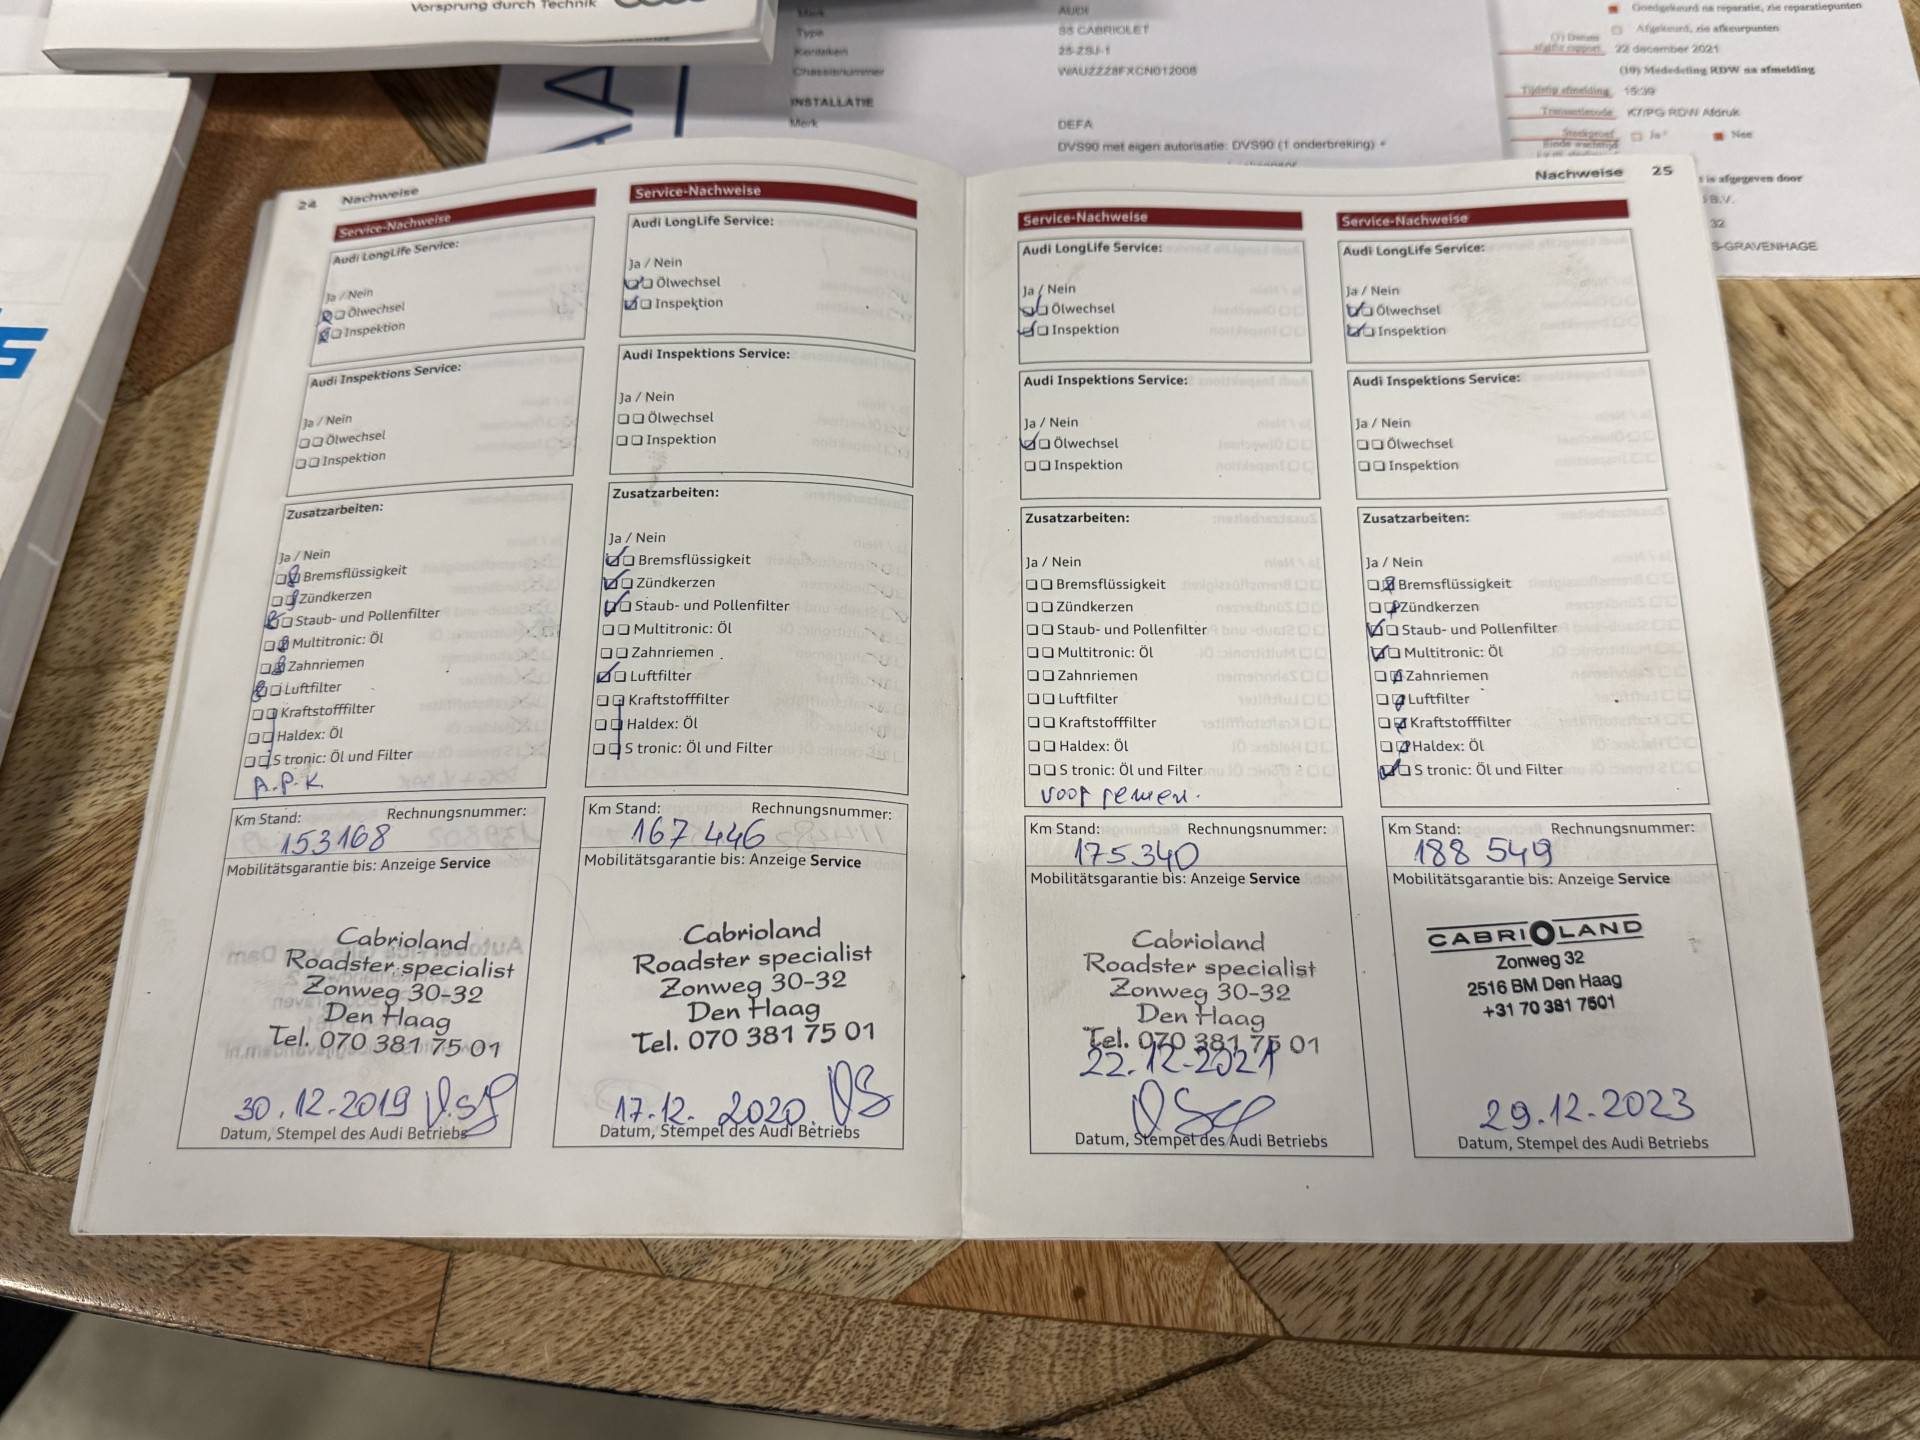 Vorsprung durch Technik
AUDI
Type
S5 CABRIOLET
Kenteken
25-ZSJ-1
Chassisnummer
WAUZZZ8FXCN012008
INSTALLATIE
Merk
DEFA
DVS90 met eigen autorisatie: DVS90 (1 onderbreking) +
Goedgekeurd na reparatie, zie reparatiepunten
Afgekeurd, zie afkeurpunten
22 december 2021
(10) Mededeling RDW na afmelding
Tijdstip afmelding 15:39
Transactiecode K7/PG RDW Afdruk
Steekproef Ja Nee
is afgegeven door
B.V.
32
S-GRAVENHAGE
24 Nachweise
Service-Nachweise
Audi LongLife Service:
Ja / Nein
Ölwechsel
Inspektion
Audi Inspektions Service:
Ja / Nein
Ölwechsel
Inspektion
Zusatzarbeiten:
Ja / Nein
Bremsflüssigkeit
Zündkerzen
Staub- und Pollenfilter
Multitronic: Öl
Zahnriemen
Luftfilter
Kraftstofffilter
Haldex: Öl
S tronic: Öl und Filter
A.P.K.
Km Stand: Rechnungsnummer:
153168
Mobilitätsgarantie bis: Anzeige Service
Cabrioland
Roadster specialist
Zonweg 30-32
Den Haag
Tel. 070 381 75 01
30.12.2019
Datum, Stempel des Audi Betriebs
Service-Nachweise
Audi LongLife Service:
Ja / Nein
Ölwechsel
Inspektion
Audi Inspektions Service:
Ja / Nein
Ölwechsel
Inspektion
Zusatzarbeiten:
Ja / Nein
Bremsflüssigkeit
Zündkerzen
Staub- und Pollenfilter
Multitronic: Öl
Zahnriemen
Luftfilter
Kraftstofffilter
Haldex: Öl
S tronic: Öl und Filter
Km Stand: Rechnungsnummer:
167 446
Mobilitätsgarantie bis: Anzeige Service
Cabrioland
Roadster specialist
Zonweg 30-32
Den Haag
Tel. 070 381 75 01
17.12. 2020.
Datum, Stempel des Audi Betriebs
Nachweise 25
Service-Nachweise
Audi LongLife Service:
Ja / Nein
Ölwechsel
Inspektion
Audi Inspektions Service:
Ja / Nein
Ölwechsel
Inspektion
Zusatzarbeiten:
Ja / Nein
Bremsflüssigkeit
Zündkerzen
Staub- und Pollenfilter
Multitronic: Öl
Zahnriemen
Luftfilter
Kraftstofffilter
Haldex: Öl
S tronic: Öl und Filter
voor remen.
Km Stand: Rechnungsnummer:
175.340
Mobilitätsgarantie bis: Anzeige Service
Cabrioland
Roadster specialist
Zonweg 30-32
Den Haag
Tel. 070 381 75 01
22.12.2021
Datum, Stempel des Audi Betriebs
Service-Nachweise
Audi LongLife Service:
Ja / Nein
Ölwechsel
Inspektion
Audi Inspektions Service:
Ja / Nein
Ölwechsel
Inspektion
Zusatzarbeiten:
Ja / Nein
Bremsflüssigkeit
Zündkerzen
Staub- und Pollenfilter
Multitronic: Öl
Zahnriemen
Luftfilter
Kraftstofffilter
Haldex: Öl
S tronic: Öl und Filter
Km Stand: Rechnungsnummer:
188 549
Mobilitätsgarantie bis: Anzeige Service
CABRIOLAND
Zonweg 32
2516 BM Den Haag
+31 70 381 7501
29.12.2023
Datum, Stempel des Audi Betriebs